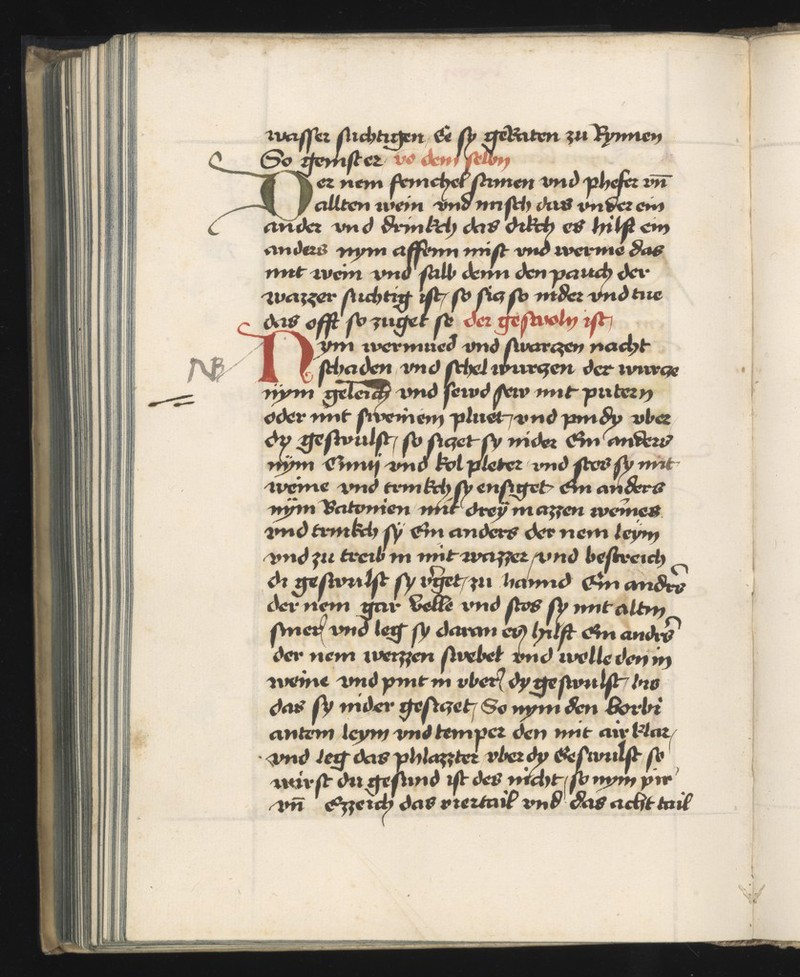 wasser suchtigen Ee sy geraten zu Rynnen
So genist er vo dem selbn
Der nem femichel samen vnd phefer vn̄
allten wein vnd misch das vnder ein
ander vnd drinkch das dikch es hilft ein
anders nym affenn mist vnd werme das
mit wein vnd salb denn den pauch der
wazzer suchtig ist / so sicz so nider vnd tue
das offt so zuget se der geswoln ist
NB
Nym wermued vnd swarczen nacht
schaden vnd schel wurczen der wurcze
nym geleich vnd sewd sew mit putern
oder mit sweinem pluet / vnd pind y vber
dy geswulst / so siczet sy nider Ein anders
nym vnd kol pleter vnd stos sy mit
weine vnd trinkch sy ensiget Ein anders
nym Batonien mit dreÿ mazzen weines
vnd trinkch sy Ein anders der nem leym
vnd zu treib in mit wazzer / vnd bestreich
di geswulst sy v'get / zu hannd Ein anders
der nem gar velle vnd stos sy mit altm
smer / vnd leg sy daran es hilft Ein anders
der nem werzzen swebel vnd welle den in
weine vnd pint in vber / dy geswulst / bis
das sy nider gesiczet / So nym den
leym vnd temper den mit air klar /
vnd leg das phlazzter vber dy Geswulst so
wirst du gesund ist des nicht / so nym pir
vn̄ Ezzeich das viertail vnd das acht tail